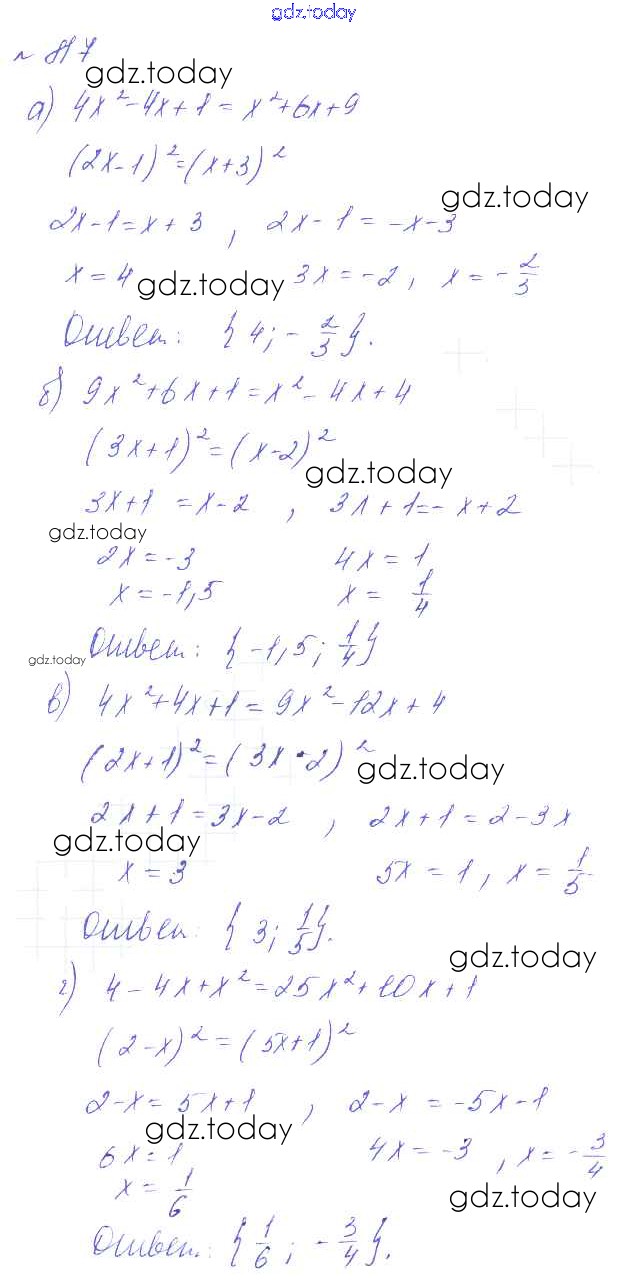 gdz.today
№ 817
gdz.today
а) 4x² - 4x + 1 = x² + 6x + 9
(2x - 1)² = (x + 3)²
gdz.today
2x - 1 = x + 3 , 2x - 1 = -x - 3
x = 4 gdz.today 3x = -2 , x = -2/3
Ответ: {4; -2/3}.
б) 9x² + 6x + 1 = x² - 4x + 4
(3x + 1)² = (x - 2)²
gdz.today
3x + 1 = x - 2 , 3x + 1 = -x + 2
gdz.today
2x = -3 4x = 1
x = -1,5 x = 1/4
Ответ: {-1,5; 1/4}
gdz.today
в) 4x² + 4x + 1 = 9x² - 12x + 4
(2x + 1)² = (3x - 2)²
gdz.today
2x + 1 = 3x - 2 , 2x + 1 = 2 - 3x
gdz.today
x = 3 5x = 1 , x = 1/5
Ответ: {3; 1/5}.
gdz.today
г) 4 - 4x + x² = 25x² + 10x + 1
(2 - x)² = (5x + 1)²
2 - x = 5x + 1 , 2 - x = -5x - 1
gdz.today
6x = 1 4x = -3 , x = -3/4
x = 1/6
gdz.today
Ответ: {1/6; -3/4}.